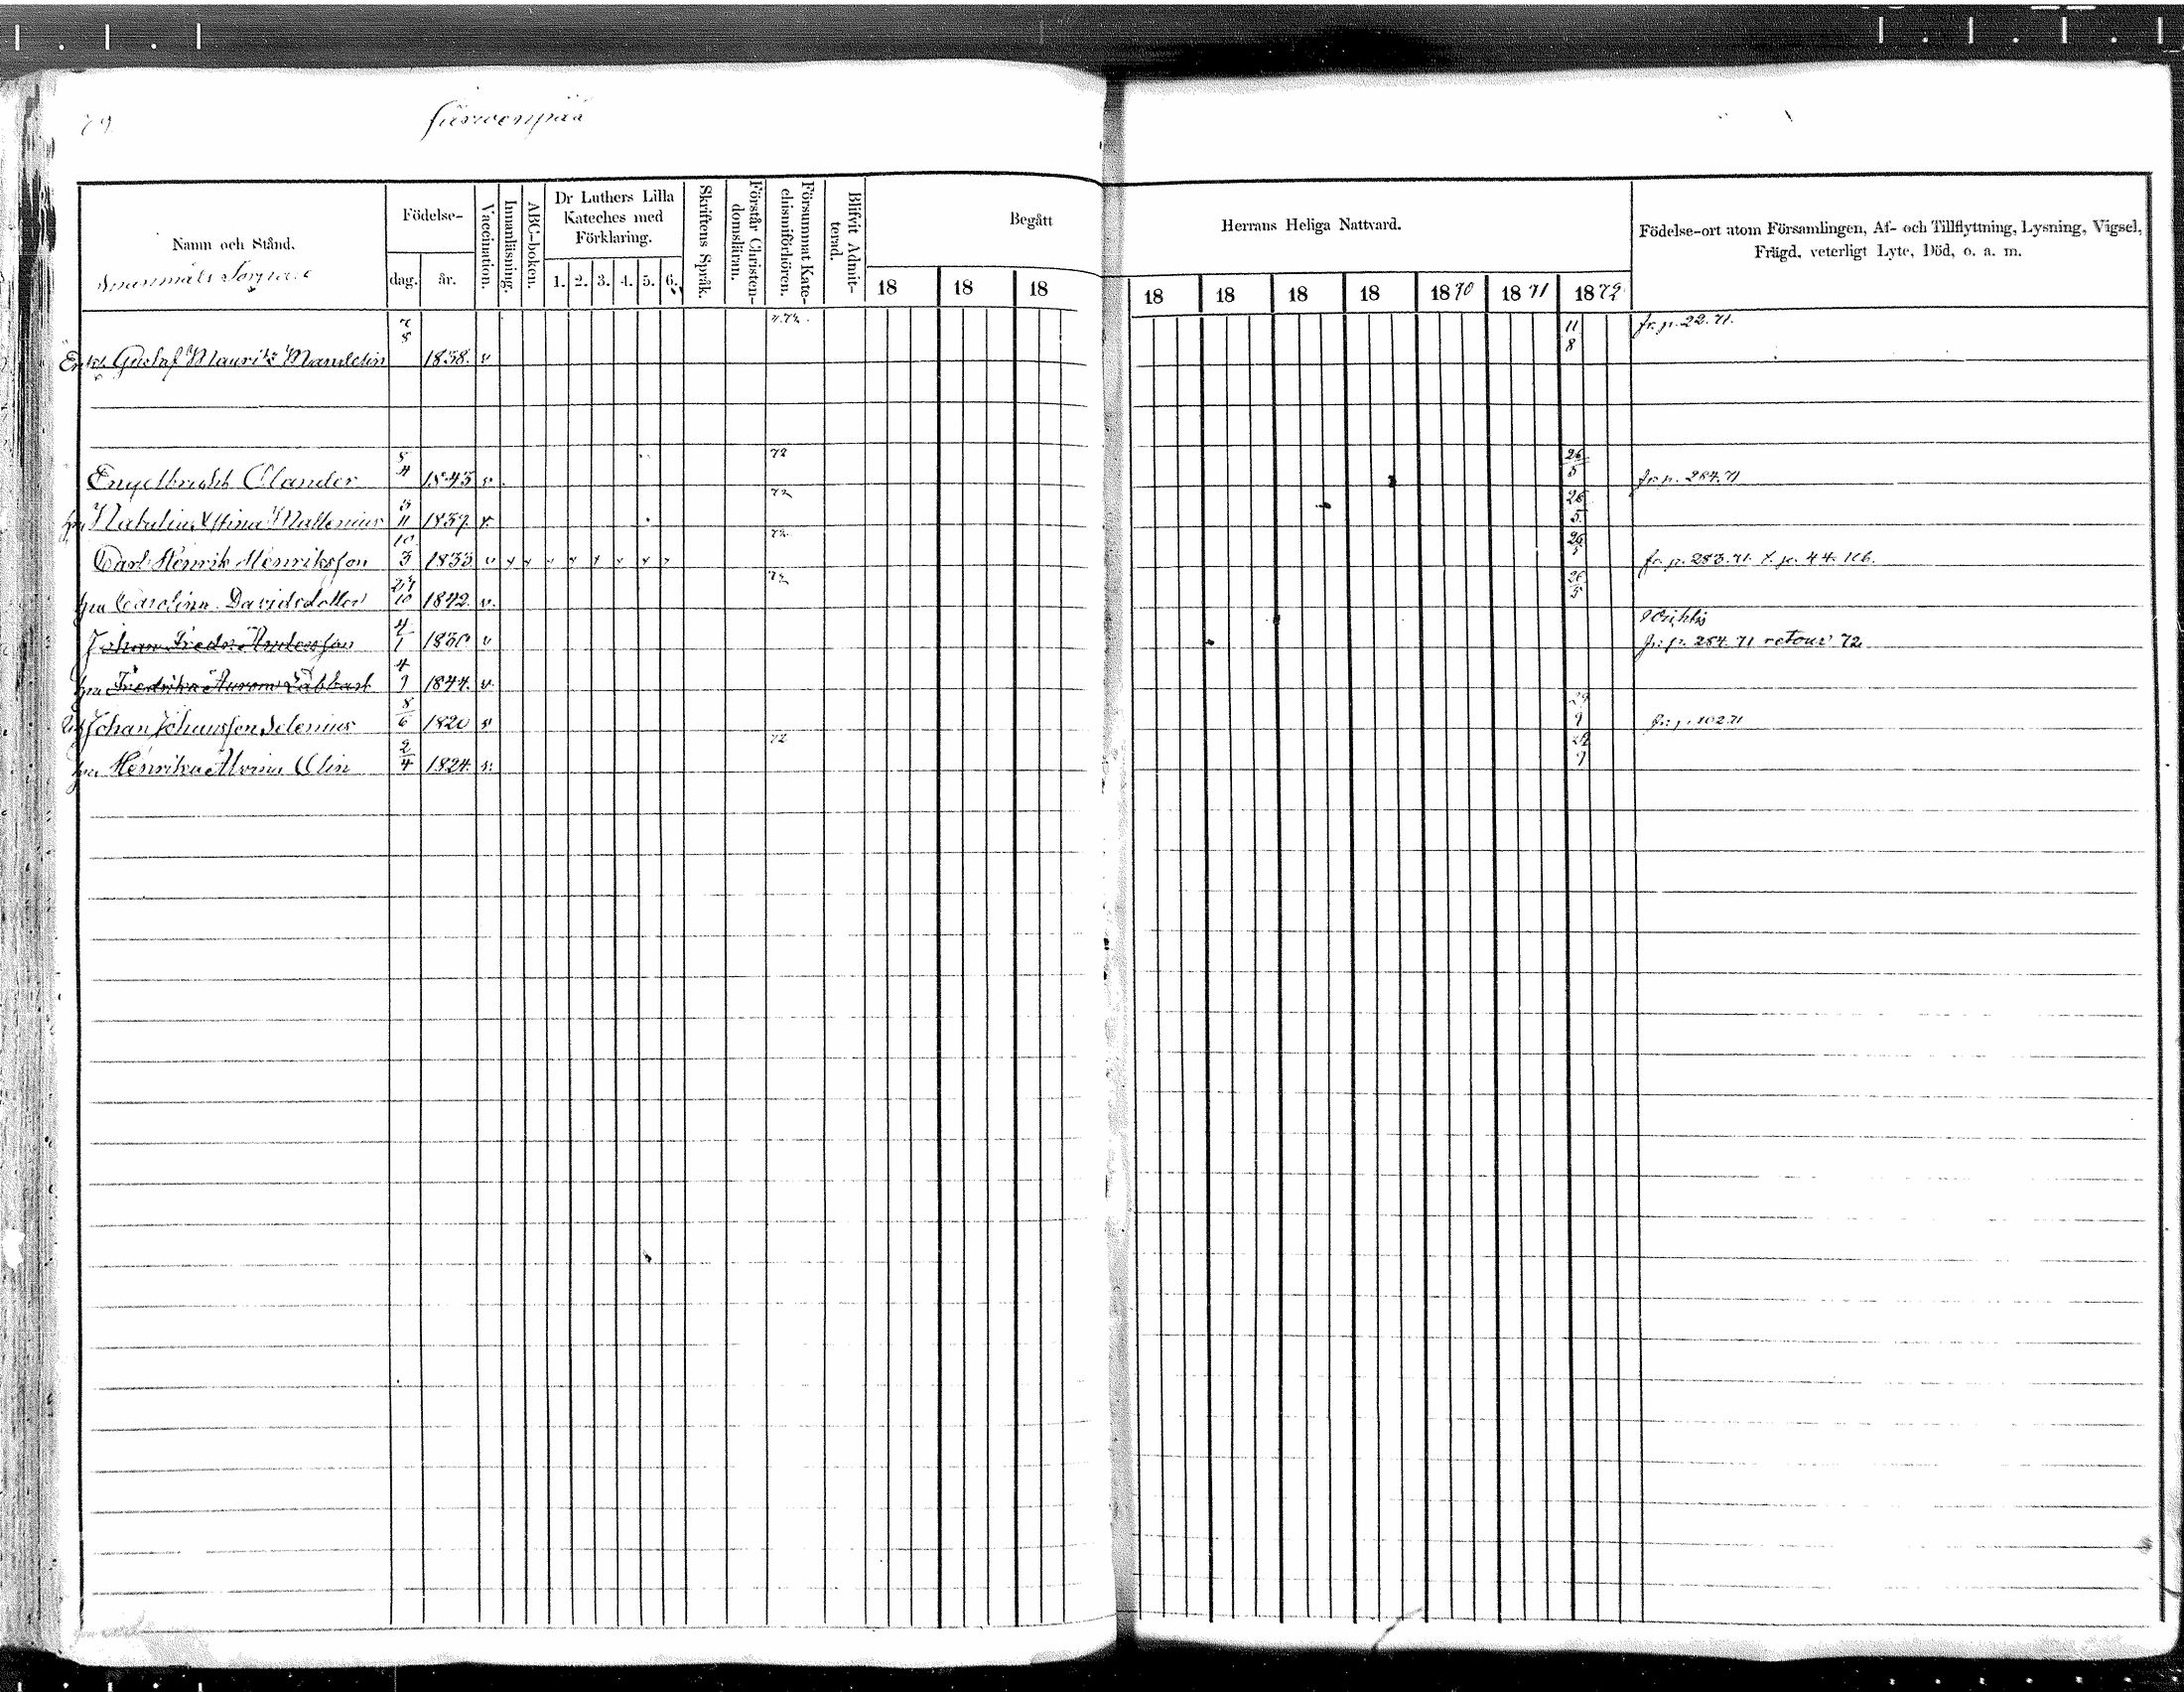 79
Namn och Stånd.
Födelse-
dag. år.
Vaccination.
Innanläsning.
ABC-boken.
Dr Luthers Lilla
Kateches med
Förklaring.
1. 2. 3. 4. 5. 6.
Skriftens Språk.
Förstår Christen-
domsläran.
Försummat Kate-
chismiförhören.
Blifvit Admit-
terad.
Begått
18 18 18
Herrans Heliga Nattvard.
18 18 18 18 1870 1871 1872
Födelse-ort utom Församlingen, Af- och Tillflyttning, Lysning, Vigsel,
Frägd, veterligt Lyte, Död, o. a. m.
Gustaf Maurits Mandelin 7/8 1838. v 72. 11/8 fr. p. 22. 71.
Engelbrekt Olander 8/4 1843 v. 72 26/5 fr. p. 284. 71
Stina 3/11 1839. v. 72 26/5
Carl Henrik Henriksson 10/3 1833. v 72 26/5 fr. p. 283. 71.
hu Carolina Davidsdotter 24/10 1842. v. 72 26/5
Johan Fredr. Andersson 4/1 1830 v fr. p. 284. 71 retour 72
hu Fredrika 4/9 1844. v.
Johan Johansson Selenius 8/6 1820 v 29/9 fr. p. 102. 71
hu Henrika Alvina Olin 2/4 1824. v. 72 29/9